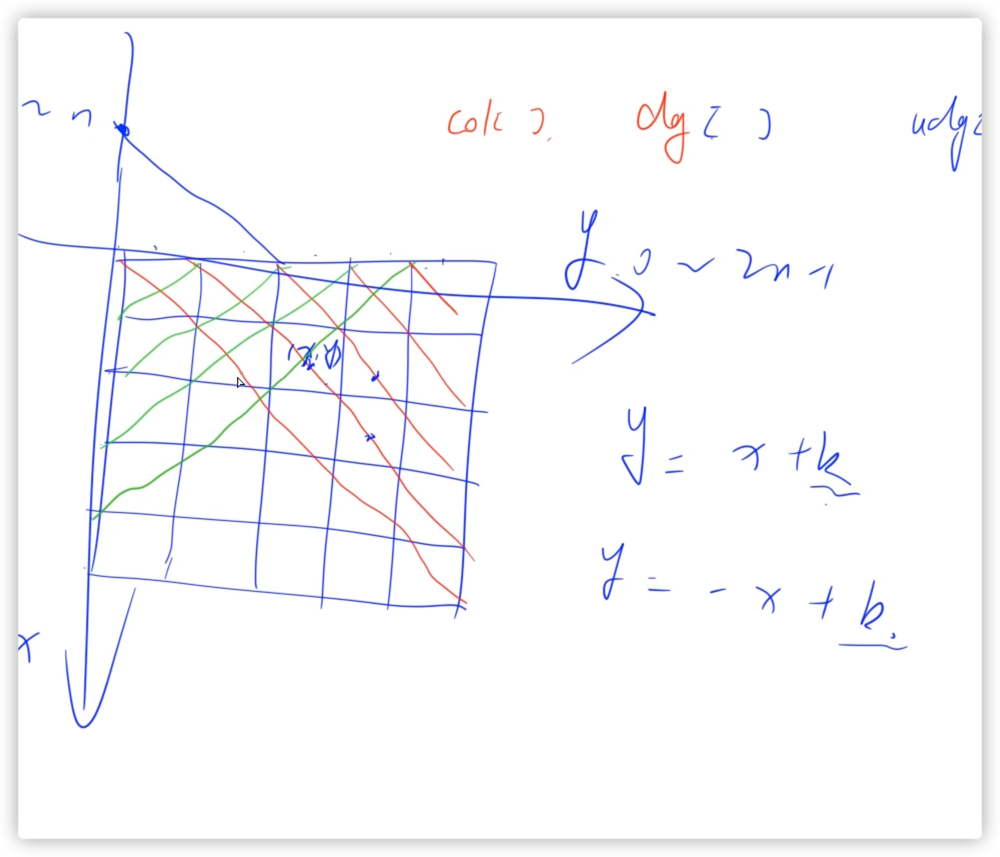 ~ n col[ ]. dg[ ] udg[
y 0 ~ 2n-1
(x,y)
y = x + k
y = - x + b.
x